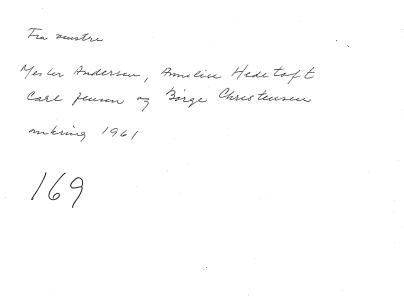 Fra venstre
Mester Andersen, Annelise Hedetoft
Carl Jensen og Børge Christensen
omkring 1961
169